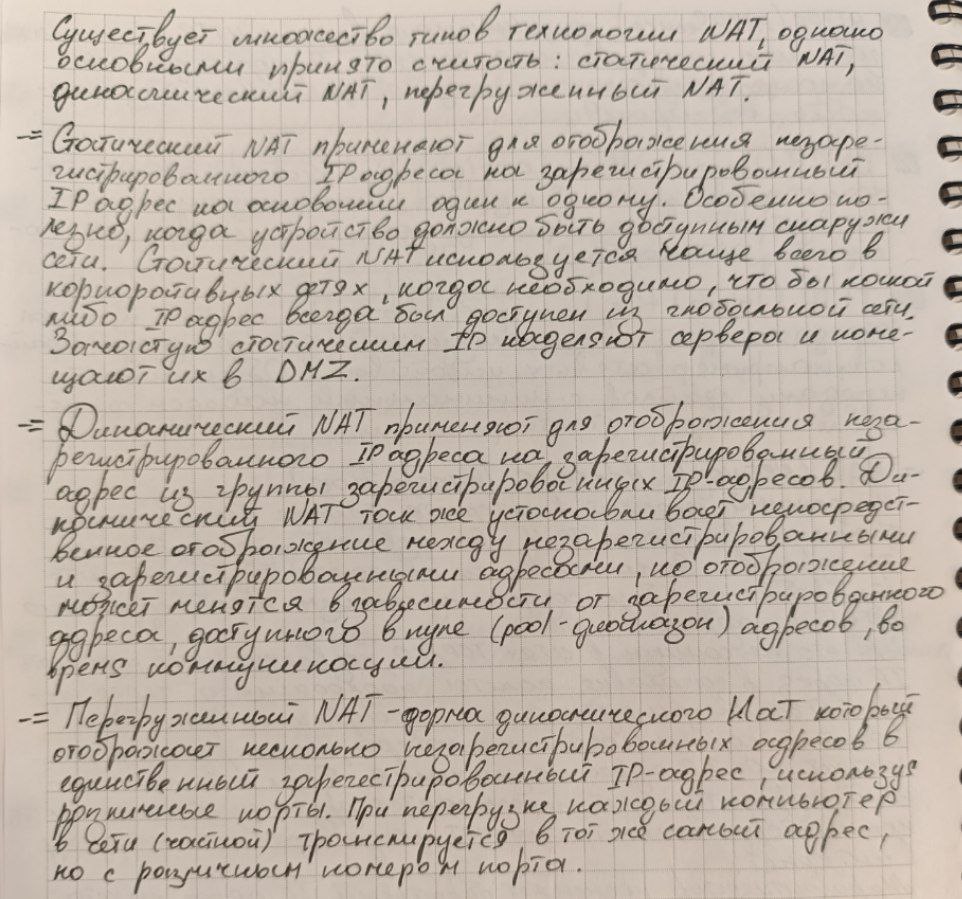 Существует множество типов технологии NAT, однако
основными принято считать: статический NAT,
динамический NAT, перегруженный NAT.
-= Статический NAT применяют для отображения незаре-
гистрированного IP адреса на зарегистрированный
IP адрес на основании один к одному. Особенно по-
лезно, когда устройство должно быть доступным снаружи
сети. Статический NAT используется чаще всего в
корпоративных сетях, когда необходимо, что бы какой
либо IP адрес всегда был доступен из глобальной сети.
Зачастую статическим IP наделяют сервера и поме-
щают их в DMZ.
-= Динамический NAT применяют для отображения неза-
регистрированного IP адреса на зарегистрированный
адрес из группы зарегистрированных IP-адресов. Ди-
намический NAT так же устанавливает непосредст-
венное отображение между незарегистрированными
и зарегистрированными адресами, но отображение
может менятся в зависимости от зарегистрированного
адреса, доступного в пуле (pool-диапазон) адресов, во
время коммуникации.
-= Перегруженный NAT-форма динамического Нат который
отображает несколько незарегистрированных адресов в
единственный зарегестрированный IP-адрес, используя
различные порты. При перегрузке каждый компьютер
в сети (частной) транслируется в тот же самый адрес,
но с различным номером порта.